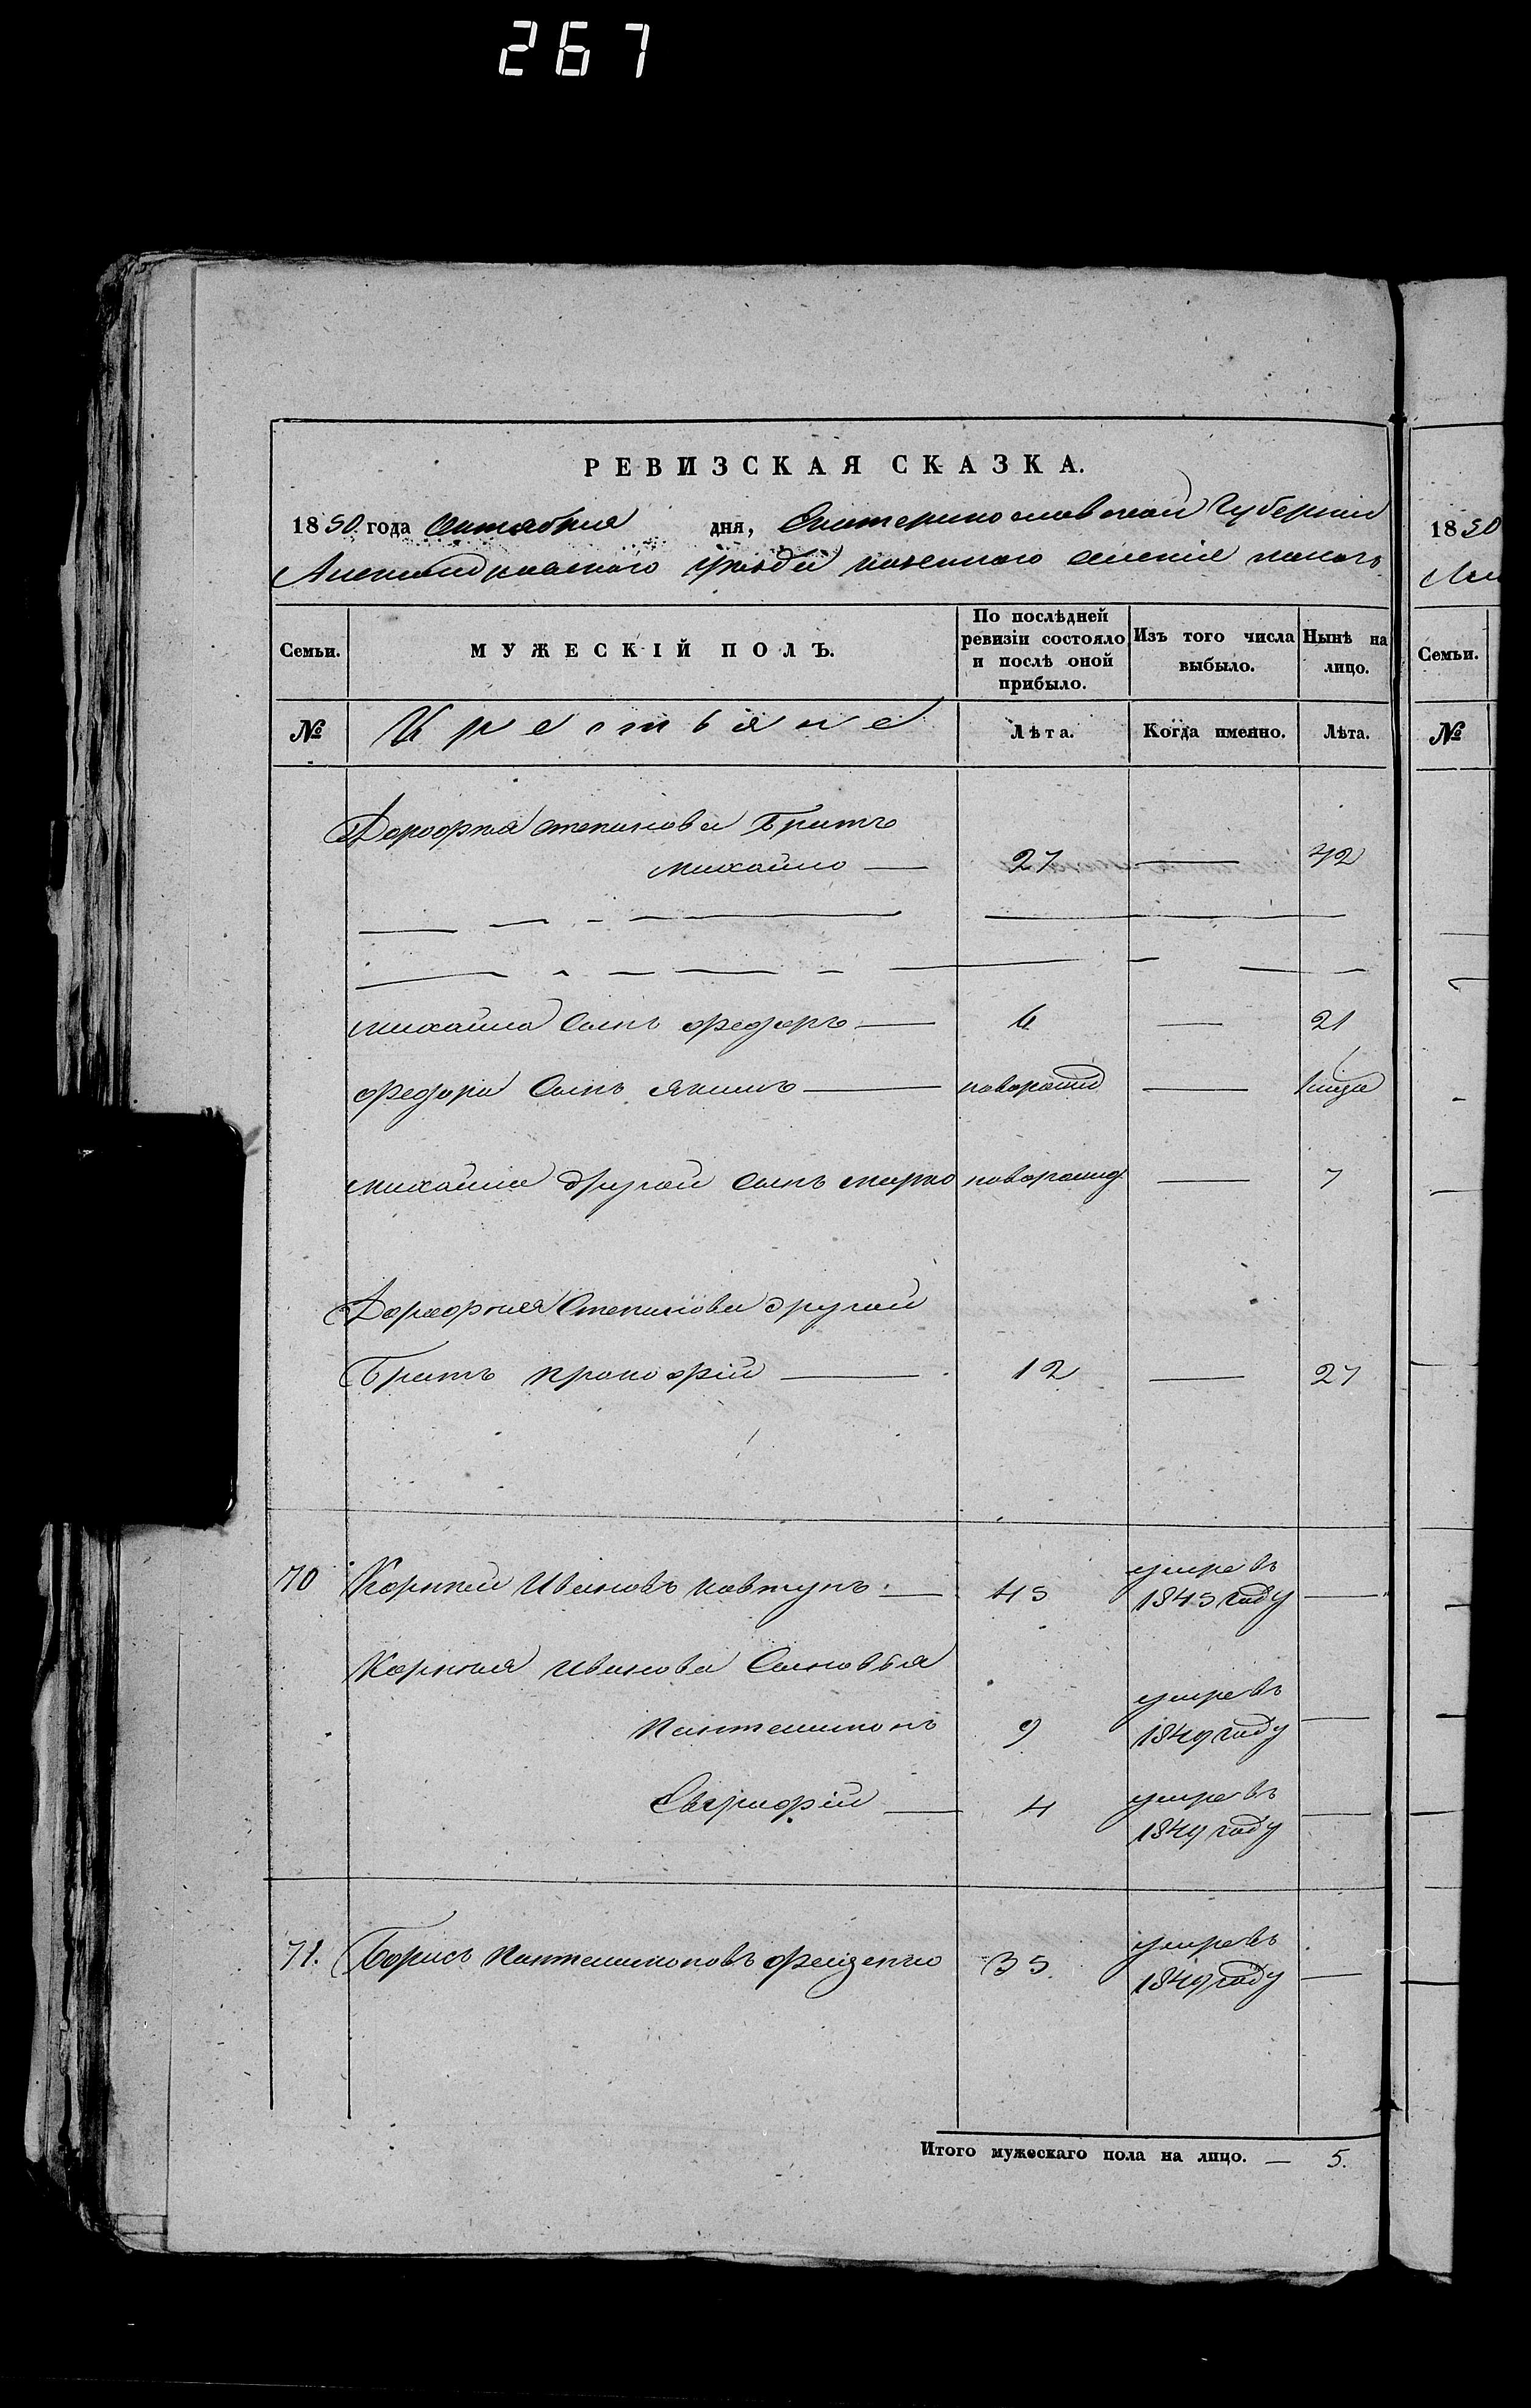 267
РЕВИЗСКАЯ СКАЗКА.
1850 года Октября дня, Екатеринославской Губернии
Александровского уезда казенного селения
Семьи. МУЖЕСКІЙ ПОЛЪ. По послѣдней ревизіи состояло и послѣ оной прибыло. Изъ того числа выбыло. Нынѣ на лицо.
№ Крестьяне Лѣта. Когда именно. Лѣта.
Дорофея Степанова Братъ
Михайло — 27 — 42
Михайла Сынъ Федоръ — 6 — 21
Федора Сынъ Яким — новорожд — 1 года
Михайла другой Сынъ Марко новорожд — 7
Дорофея Степанова другой
Братъ Прокофій — 12 — 27
70 Корней Ивановъ Ковтунъ — 45 умре въ 1845 году —
Корнея Иванова Сыновья
Пантелимонъ 9 умре въ 1849 году —
Евграфій — 4 умре въ 1849 году —
71. Борисъ Пантелимоновъ 35. умре въ 1849 году —
Итого мужескаго пола на лицо. — 5.
1850
Семьи.
№